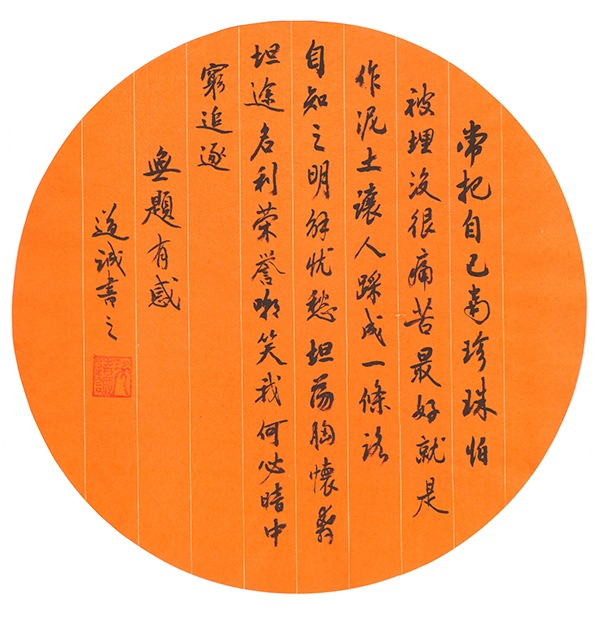 常把自己當珍珠怕
被埋没很痛苦最好就是
作泥土讓人踩成一條路
自知之明解忧愁坦蕩胸懷尋
坦途名利荣譽嘲笑我何必暗中
窮追逐
無題有感
道誠書之